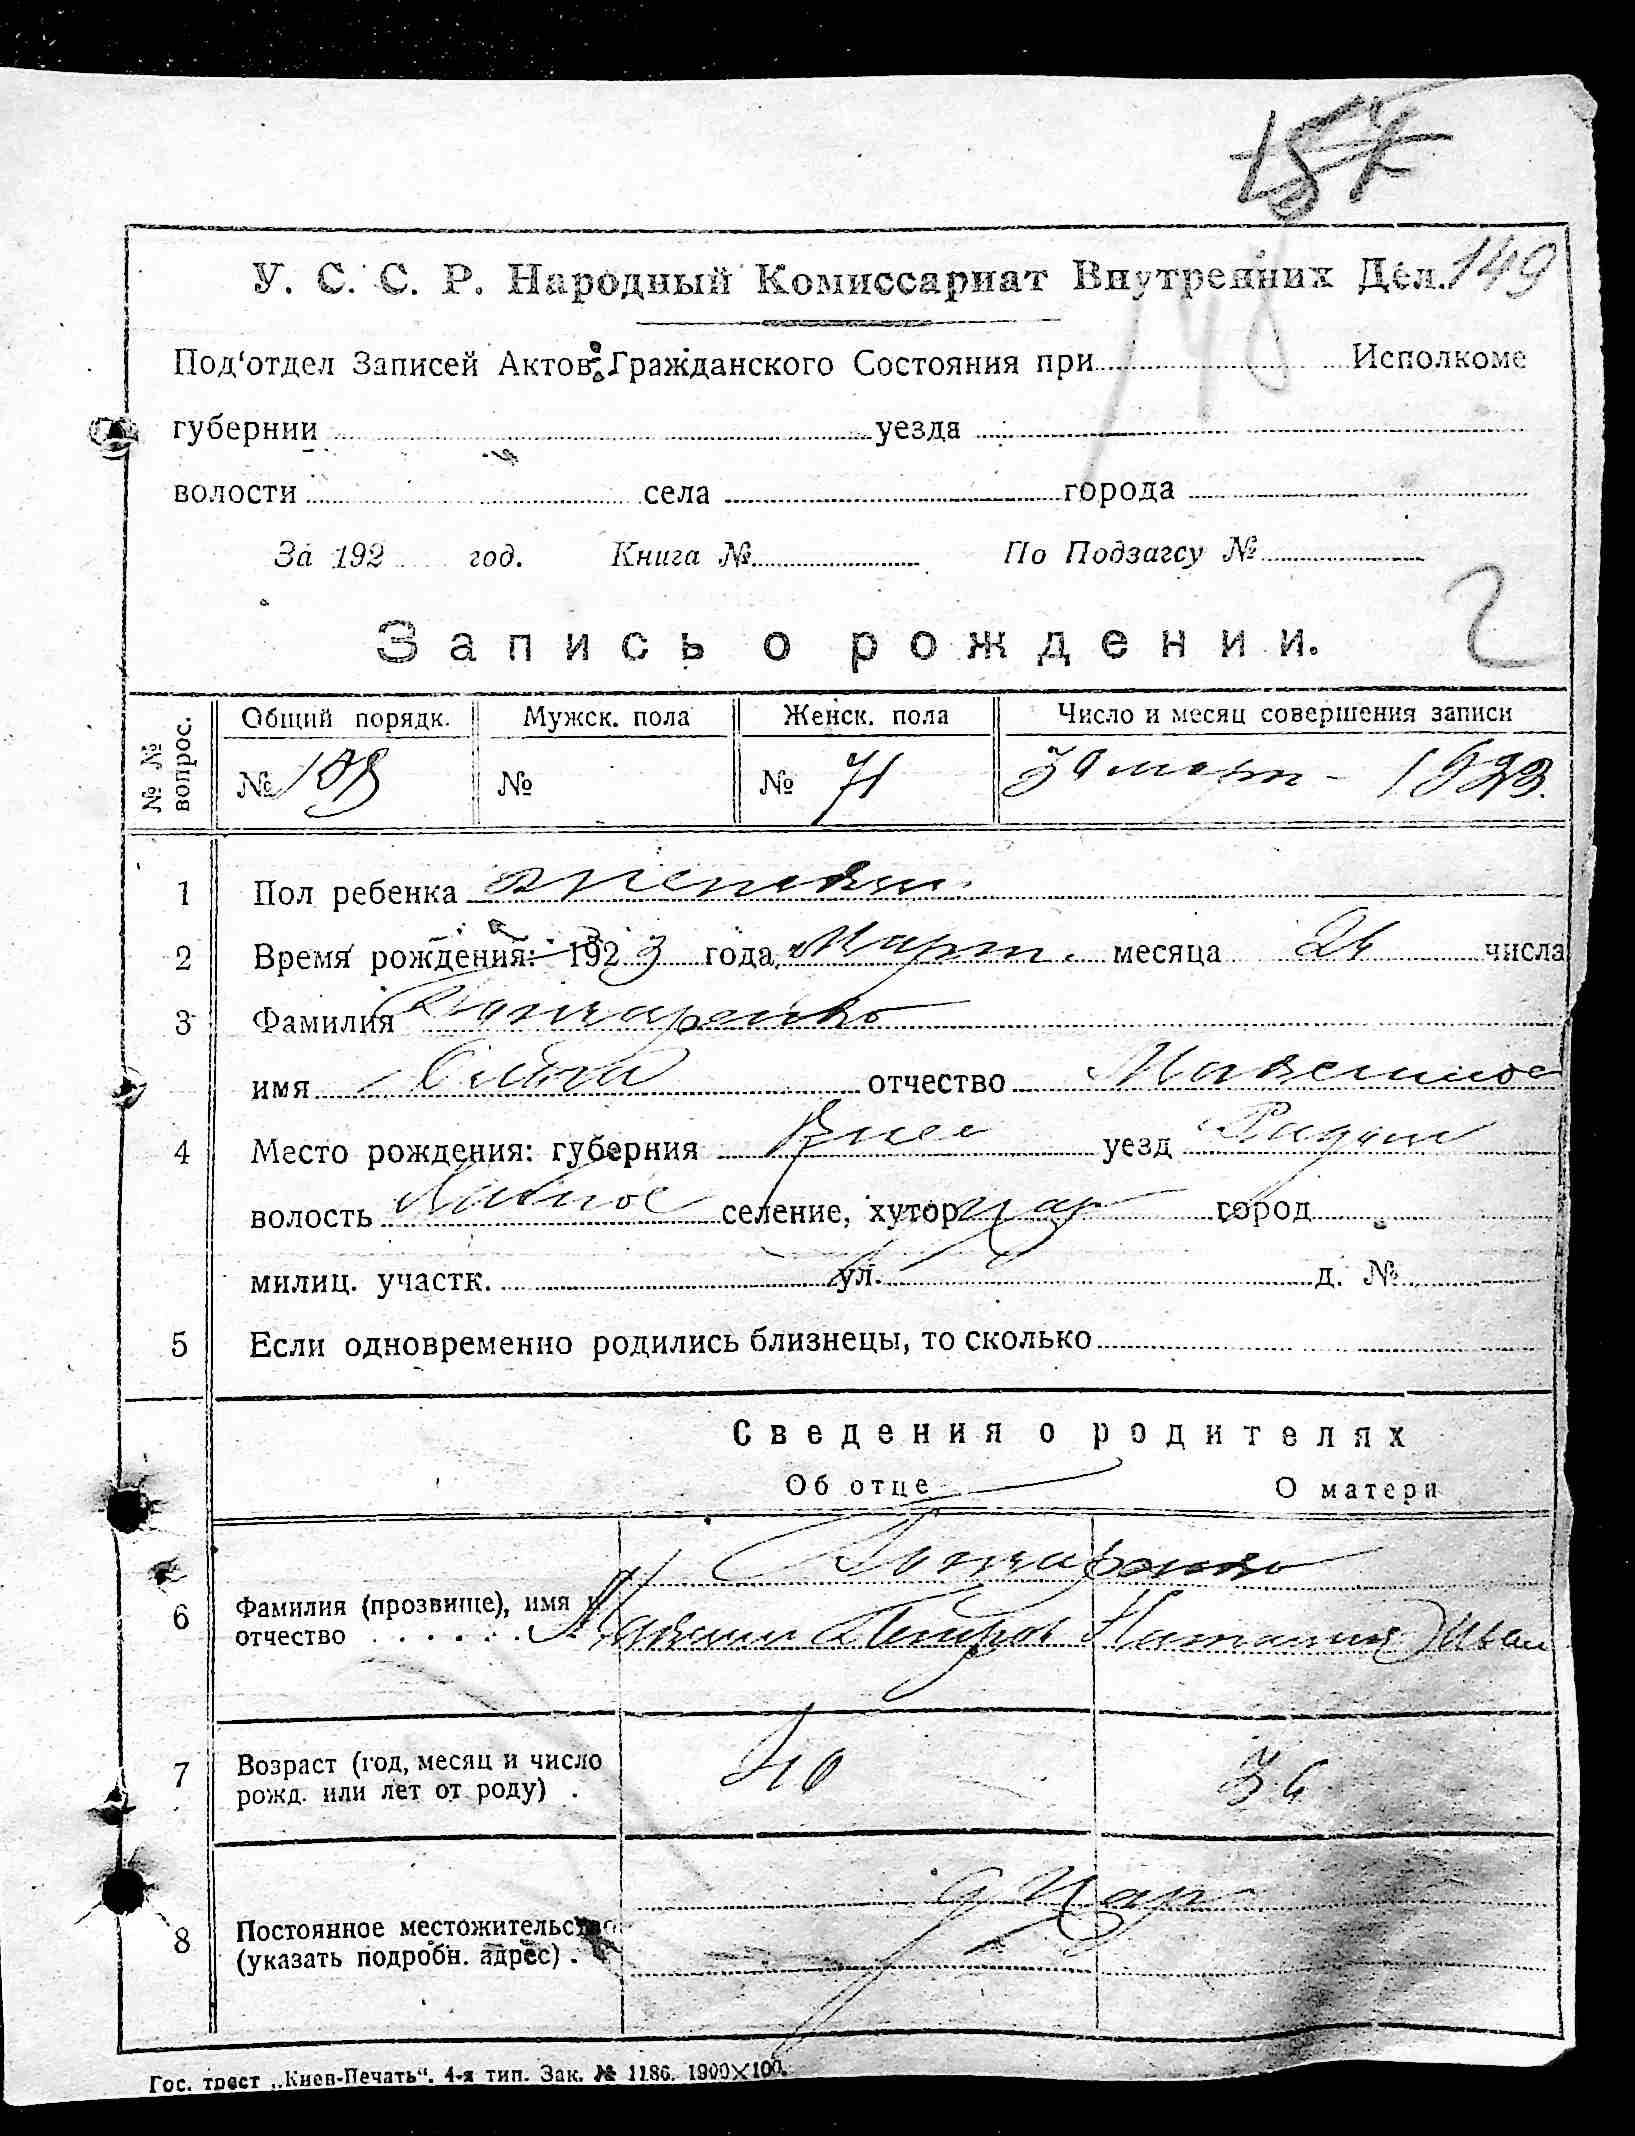 149
У. С. С. Р. Народный Комиссариат Внутренних Дел.
Под'отдел Записей Актов Гражданского Состояния при Исполкоме
губернии уезда
волости села города
За 192 год. Книга № По Подзагсу №
2
Запись о рождении.
№ № вопрос. Общий порядк. Мужск. пола Женск. пола Число и месяц совершения записи
№ № № 71 март 1923.
1 Пол ребенка женский
2 Время рождения: 1923 года, Март. месяца числа
3 Фамилия Гончаренко
имя Ольга отчество
4 Место рождения: губерния Киев уезд
волость селение, хутор город
милиц. участк. ул. д. №
5 Если одновременно родились близнецы, то сколько
Сведения о родителях
Об отце О матери
Гончаренко
6 Фамилия (прозвище), имя и
отчество Максим Петров Наталия Иван
7 Возраст (год, месяц и число
рожд. или лет от роду) . 40
8 Постоянное местожительство
(указать подробн. адрес) .
Гос. трест „Киев-Печать“. 4-я тип. Зак. № 1186. 1900×100.